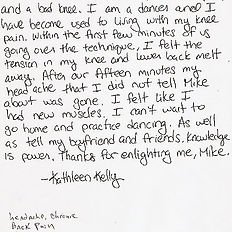 and a bad knee. I am a dancer and I
have become used to living with my knee
pain. Within the first few minutes of us
going over the technique, I felt the
tension in my knee and lower back melt
away. After our fifteen minutes my
head ache that I did not tell Mike
about was gone. I felt like I
had new muscles. I can't wait to
go home and practice dancing. As well
as tell my boyfriend and friends. Knowledge
is power. Thanks for enlighting me, Mike.
-Kathleen Kelly
headache, chronic
Back Pain